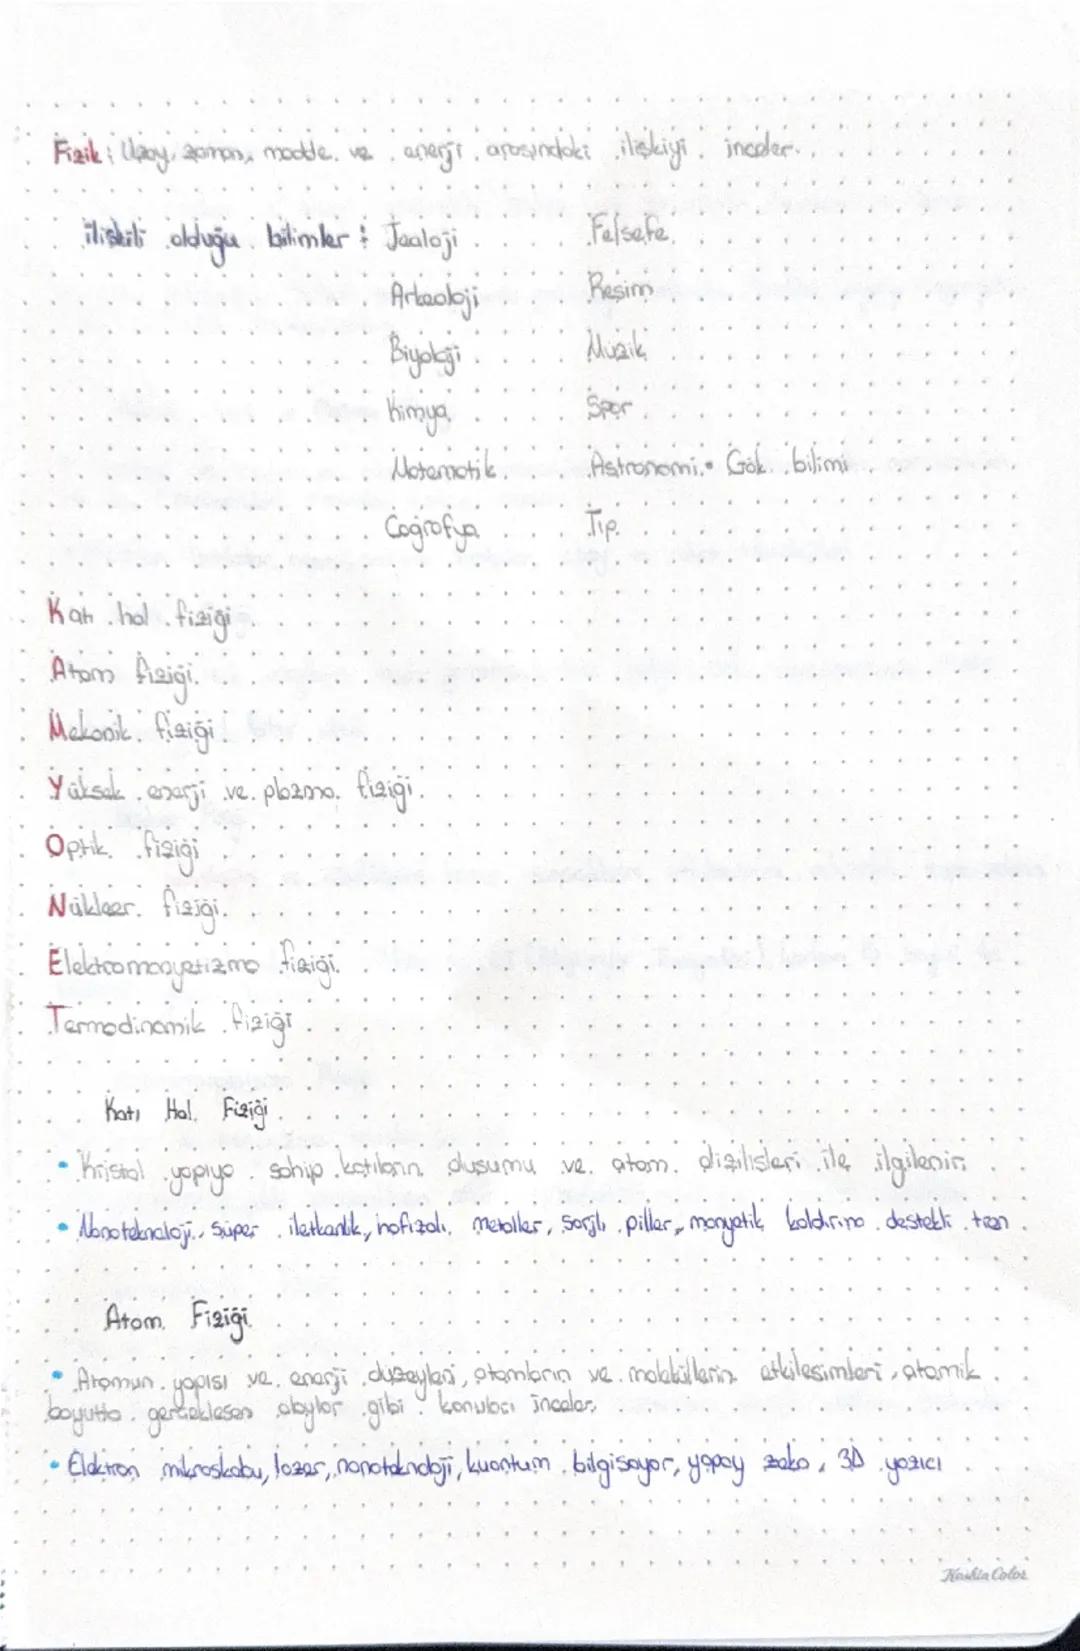 Fizik: Uzay, zaman, madde ve enerji arasındaki ilişkiyi inceler.
ilişkili olduğu bilimler: Jeoloji Felsefe
Arkeoloji Resim
Biyoloji Müzik
Kimya Spor
Matematik Astronomi • Gök bilimi
Coğrafya Tıp
Katı hal fiziği
Atom fiziği
Mekanik fiziği
Yüksek enerji ve plazma fiziği
Optik fiziği
Nükleer fiziği
Elektromanyetizma fiziği
Termodinamik fiziği
Katı Hal Fiziği
• Kristal yapıya sahip katıların duşumu ve atom dizilişleri ile ilgilenir.
• Nanoteknoloji, süper iletkenlik, hafızalı metaller, şarjlı piller, manyetik kaldırma destekli tren
Atom Fiziği
• Atomun yapısı ve enerji düzeyleri, atomların ve moleküllerin etkileşimleri, atomik
boyutta gerçekleşen olaylar gibi konuları inceler.
• Elektron mikroskobu, lazer, nanoteknoloji, kuantum bilgisayar, yapay zeka, 3D yazıcı
Keskin Color